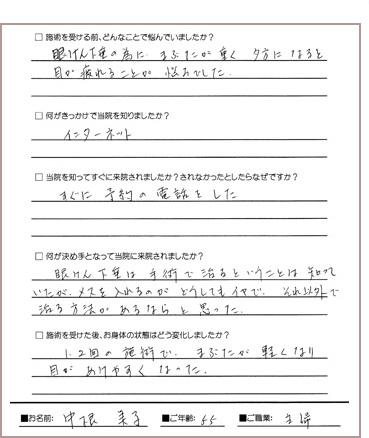 □ 施術を受ける前、どんなことで悩んでいましたか?
眼けん下垂の為に まぶたが重く 夕方になると
目が疲れることが 悩みでした.
□ 何がきっかけで当院を知りましたか?
インターネット
□ 当院を知ってすぐに来院されましたか?されなかったとしたらなぜですか?
すぐに 予約の電話をした
□ 何が決め手となって当院に来院されましたか?
眼けん下垂は 手術で治るということは 知って
いたが、メスを入れるのが どうしてもイヤで. それ以外で
治る方法が あるならと 思った.
□ 施術を受けた後、お身体の状態はどう変化しましたか?
1.2回の施術で. まぶたが 軽くなり
目が あけやすく なった.
■お名前: 中根 美子 ■ご年齢: 55 ■ご職業: 主婦